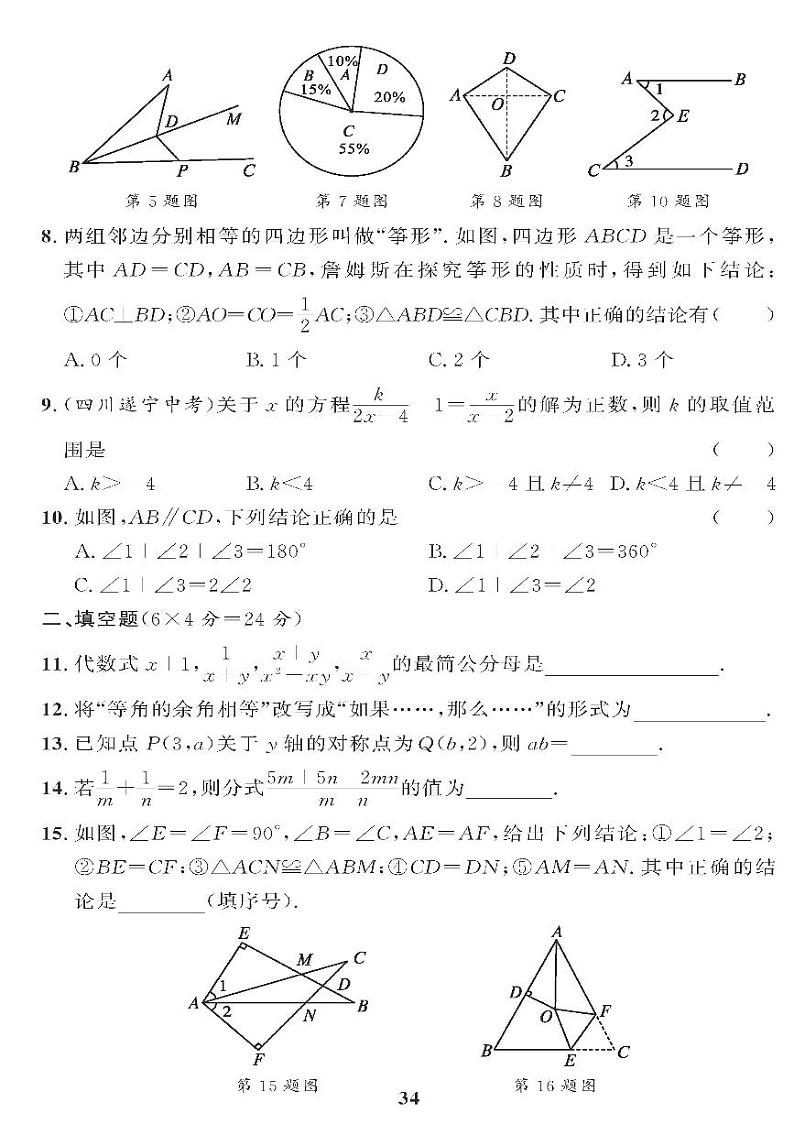 A
B
D
M
P
C
10%
B
A
D
15%
20%
C
55%
D
A
O
C
B
A
1
B
2
E
C
3
D
第 5 题图
第 7 题图
第 8 题图
第 10 题图
8. 两组邻边分别相等的四边形叫做“筝形”. 如图,四边形 ABCD 是一个筝形,
其中 AD=CD,AB=CB,詹姆斯在探究筝形的性质时,得到如下结论:
①AC⊥BD;②AO=CO=1/2 AC;③△ABD≌△CBD. 其中正确的结论有( )
A. 0 个 B. 1 个 C. 2 个 D. 3 个
9. (四川遂宁中考)关于 x 的方程 k/(2x-4) 1= x/(x-2) 的解为正数,则 k 的取值范
围是 ( )
A. k> 4 B. k<4 C. k> 4 且 k≠4 D. k<4 且 k≠ 4
10. 如图,AB∥CD,下列结论正确的是 ( )
A. ∠1+∠2+∠3=180° B. ∠1+∠2+∠3=360°
C. ∠1+∠3=2∠2 D. ∠1+∠3=∠2
二、填空题(6×4 分=24 分)
11. 代数式 x+1, 1/(x+y), (x+y)/(x²-xy), x/(x-y) 的最简公分母是________.
12. 将“等角的余角相等”改写成“如果……,那么……”的形式为________.
13. 已知点 P(3,a)关于 y 轴的对称点为 Q(b,2),则 ab=________.
14. 若 1/m + 1/n =2,则分式 (5m+5n 2mn)/(m n) 的值为________.
15. 如图,∠E=∠F=90°,∠B=∠C,AE=AF,给出下列结论:①∠1=∠2;
②BE=CF;③△ACN≌△ABM;④CD=DN;⑤AM=AN. 其中正确的结
论是________(填序号).
E
M
C
1
D
A
2
N
B
F
A
D
O
F
B
E
C
第 15 题图
第 16 题图
34